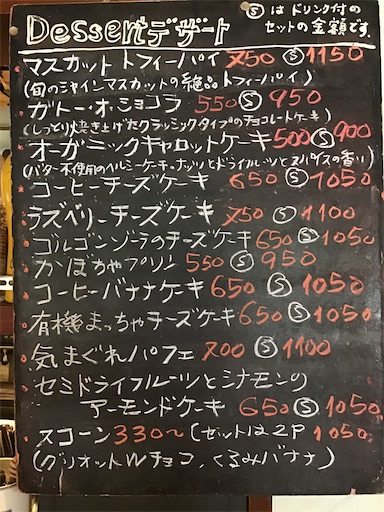 Dessertデザート
Ⓢはドリンク付の
セットの金額です.
マスカットトフィーパイ 750 Ⓢ 1150
(旬のシャインマスカットの絶品トフィーパイ)
ガトー・オ・ショコラ 550 Ⓢ 950
(しっとり焼き上げたクラッシックタイプのチョコレートケーキ)
オーガニックキャロットケーキ 500 Ⓢ 900
(バター不使用のヘルシーケーキ ナッツとドライフルーツとスパイスの香い)
コーヒーチーズケーキ 650 Ⓢ 1050
ラズベリーチーズケーキ 750 Ⓢ 1100
ゴルゴンゾーラのチーズケーキ 650 Ⓢ 1050
かぼちゃプリン 550 Ⓢ 950
コーヒーバナナケーキ 650 Ⓢ 1050
有機まっちゃチーズケーキ 650 Ⓢ 1050
気まぐれパフェ 700 Ⓢ 1100
セミドライフルーツとシナモンの
アーモンドケーキ 650 Ⓢ 1050
スコーン 330〜 (セットは2P 1050)
(グリオットWチョコ、くるみバナナ)